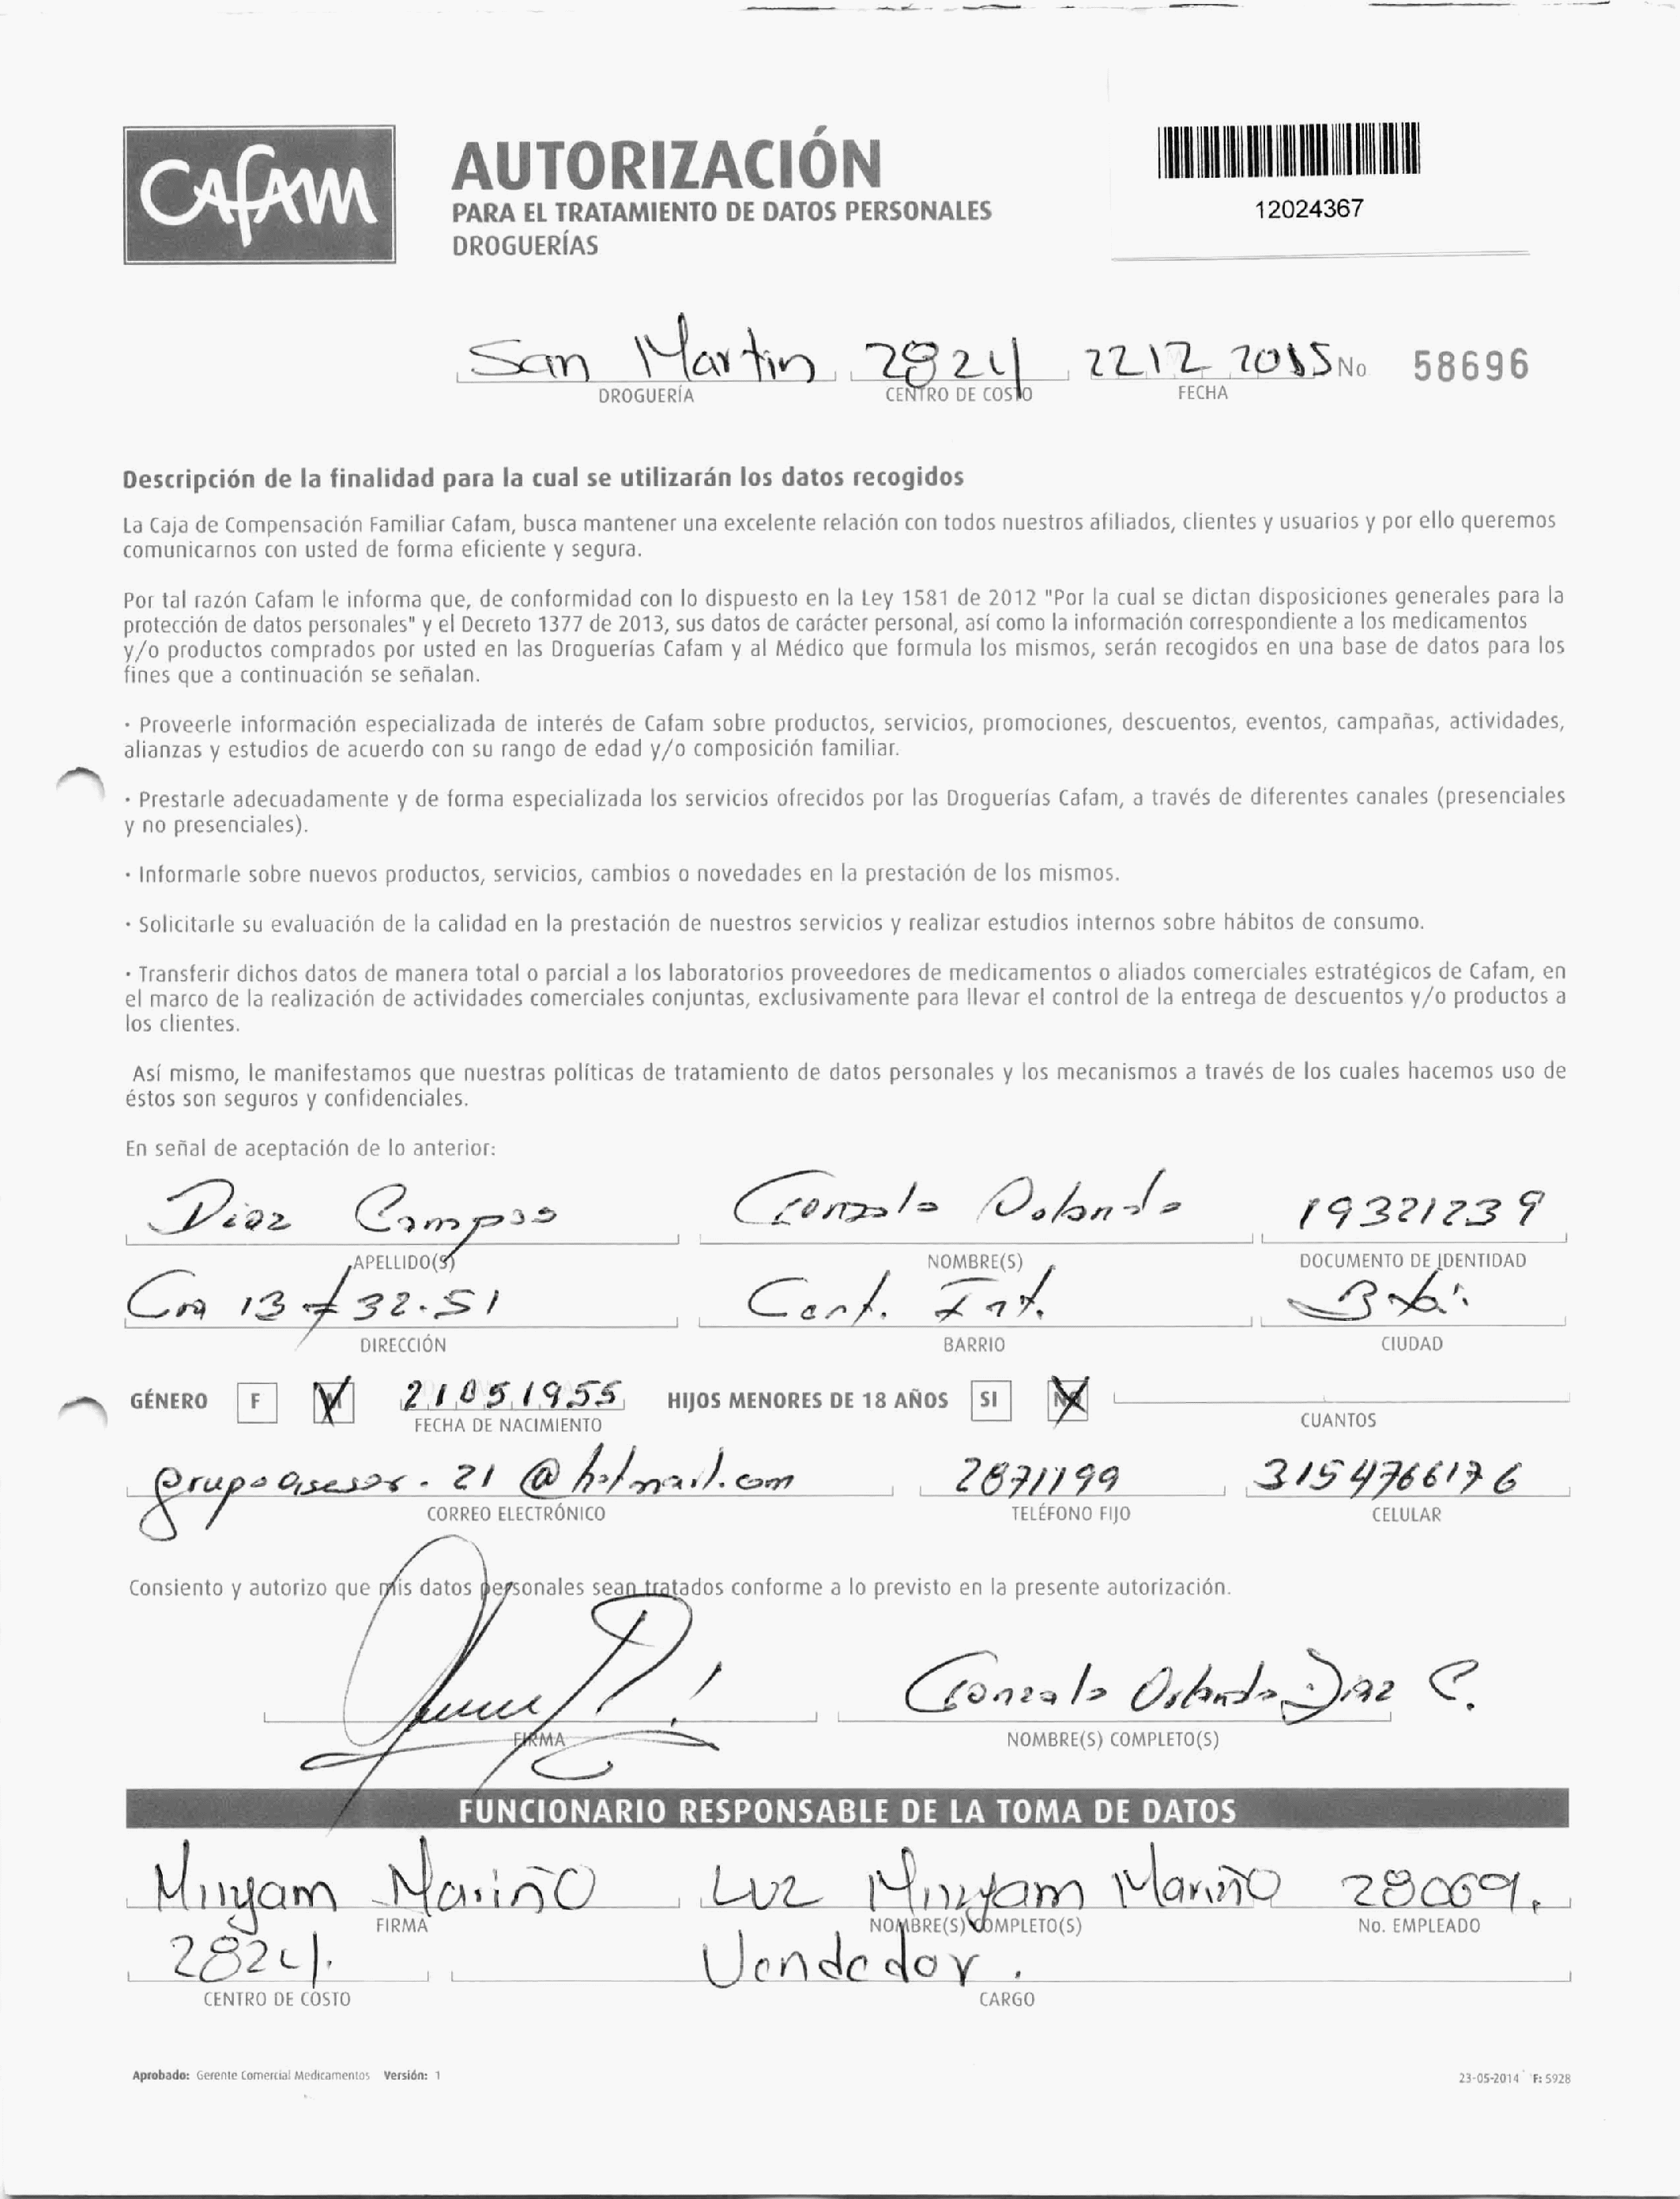 CAFAM
AUTORIZACIÓN
PARA EL TRATAMIENTO DE DATOS PERSONALES
DROGUERÍAS
12024367
San Martin 2824 22 12 2015 No 58696
DROGUERÍA CENTRO DE COSTO FECHA
Descripción de la finalidad para la cual se utilizarán los datos recogidos
La Caja de Compensación Familiar Cafam, busca mantener una excelente relación con todos nuestros afiliados, clientes y usuarios y por ello queremos
comunicarnos con usted de forma eficiente y segura.
Por tal razón Cafam le informa que, de conformidad con lo dispuesto en la Ley 1581 de 2012 "Por la cual se dictan disposiciones generales para la
protección de datos personales" y el Decreto 1377 de 2013, sus datos de carácter personal, así como la información correspondiente a los medicamentos
y/o productos comprados por usted en las Droguerías Cafam y al Médico que formula los mismos, serán recogidos en una base de datos para los
fines que a continuación se señalan.
· Proveerle información especializada de interés de Cafam sobre productos, servicios, promociones, descuentos, eventos, campañas, actividades,
alianzas y estudios de acuerdo con su rango de edad y/o composición familiar.
· Prestarle adecuadamente y de forma especializada los servicios ofrecidos por las Droguerías Cafam, a través de diferentes canales (presenciales
y no presenciales).
· Informarle sobre nuevos productos, servicios, cambios o novedades en la prestación de los mismos.
· Solicitarle su evaluación de la calidad en la prestación de nuestros servicios y realizar estudios internos sobre hábitos de consumo.
· Transferir dichos datos de manera total o parcial a los laboratorios proveedores de medicamentos o aliados comerciales estratégicos de Cafam, en
el marco de la realización de actividades comerciales conjuntas, exclusivamente para llevar el control de la entrega de descuentos y/o productos a
los clientes.
Así mismo, le manifestamos que nuestras políticas de tratamiento de datos personales y los mecanismos a través de los cuales hacemos uso de
éstos son seguros y confidenciales.
En señal de aceptación de lo anterior:
Diaz Campos Gonzalo Orlando 19321239
APELLIDO(S) NOMBRE(S) DOCUMENTO DE IDENTIDAD
Cra 13 # 32-51 Cent. Int. Bta
DIRECCIÓN BARRIO CIUDAD
GÉNERO F M 21 05 1955 HIJOS MENORES DE 18 AÑOS SI NO
FECHA DE NACIMIENTO CUANTOS
grupoasesor-21@hotmail.com 2871199 3154766176
CORREO ELECTRÓNICO TELÉFONO FIJO CELULAR
Consiento y autorizo que mis datos personales sean tratados conforme a lo previsto en la presente autorización.
Gonzalo Orlando Diaz C.
FIRMA NOMBRE(S) COMPLETO(S)
FUNCIONARIO RESPONSABLE DE LA TOMA DE DATOS
Miryam Mariño Luz Miryam Mariño 28069.
FIRMA NOMBRE(S) COMPLETO(S) No. EMPLEADO
2824. Vendedor.
CENTRO DE COSTO CARGO
Aprobado: Gerente Comercial Medicamentos Versión: 1 23-05-2014 F: 5928